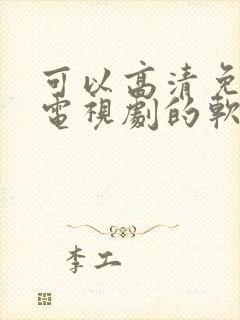 可以高清免
電視劇的軟
李工